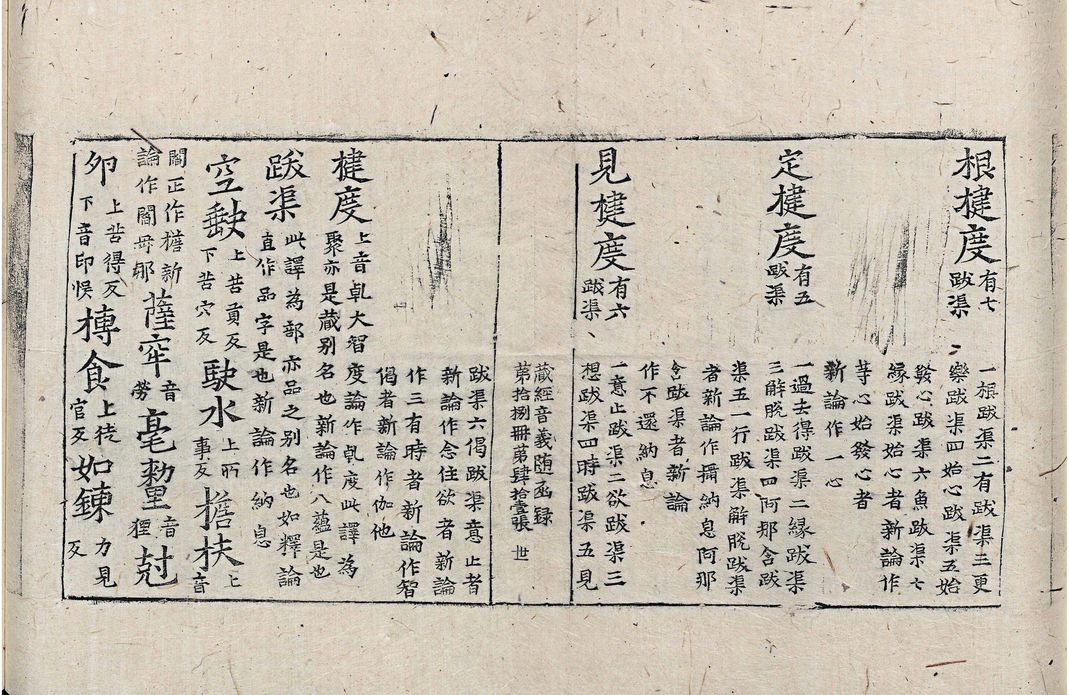 根揵度有七跋渠
一根跋渠二有跋渠三更
樂跋渠四始心跋渠五始
發心跋渠六魚跋渠七
緣跋渠始心者新論作
等心始發心者
新論作一心
定揵度有五跋渠
一過去得跋渠二緣跋渠
三解脫跋渠四阿那含跋
渠五一行跋渠解脫跋渠
者新論作攝納息阿那
含跋渠者新論
作不還納息
見揵度有六跋渠
一意止跋渠二欲跋渠三
想跋渠四時跋渠五見
藏經音義随函録
第拾捌冊第肆拾壹張 世
跋渠六偈跋渠意止者
新論作念住欲者新論
作三有時者新論作智
偈者新論作伽他
揵度上音乹大智度論作乹度此譯為
聚亦是蔵别名也新論作八蘊是也
跋渠此譯為部亦品之别名也如釋論
直作品字是也新論作納息
空缺上苦貢反下苦穴反駛水上所事反擔扶上音
閻正作檐新論作閻毋那薩牢音勞毫氂音狸尅
上苦得反卵下音印悮摶食上徒官反如鍊力見反